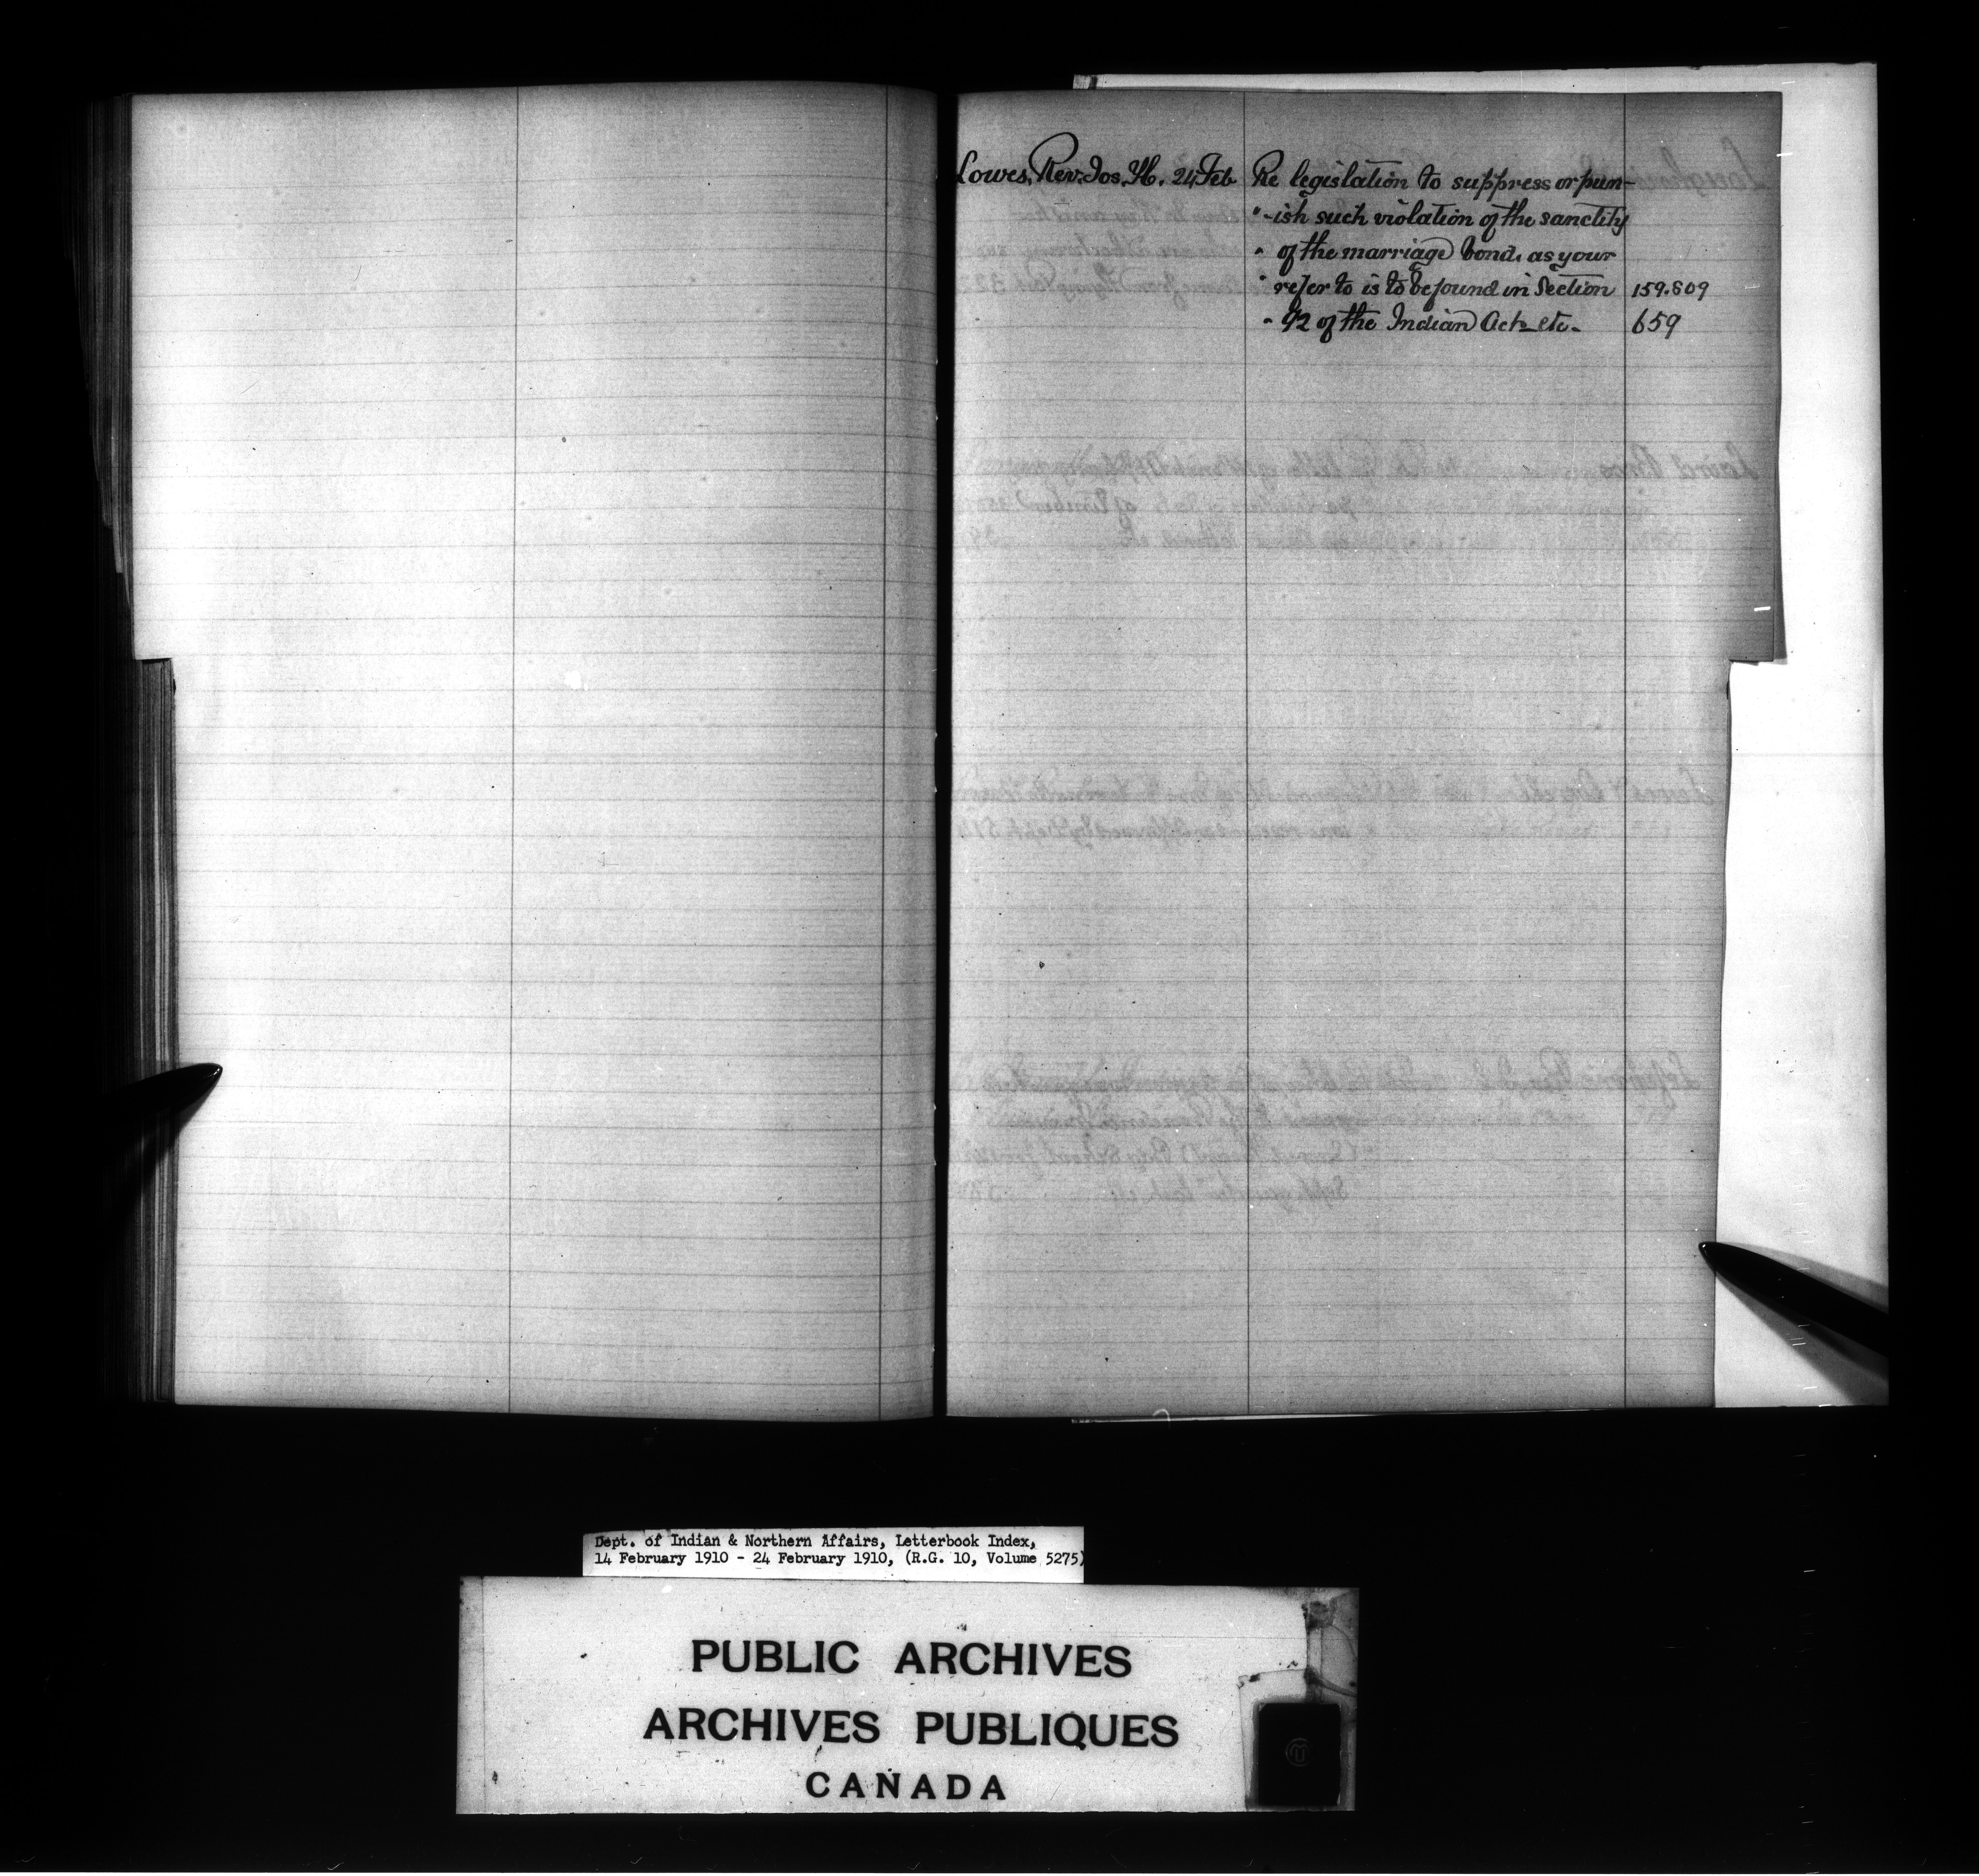 Lowes, Rev. Jos. H. 24 Feb Re legislation to suppress or pun-
" -ish such violation of the sanctity
" of the marriage bond, as your
" refer to is to be found in Section 159.809
" 92 of the Indian Act etc. 659
Dept. of Indian & Northern Affairs, Letterbook Index,
14 February 1910 - 24 February 1910, (R.G. 10, Volume 5275)
PUBLIC ARCHIVES
ARCHIVES PUBLIQUES
CANADA